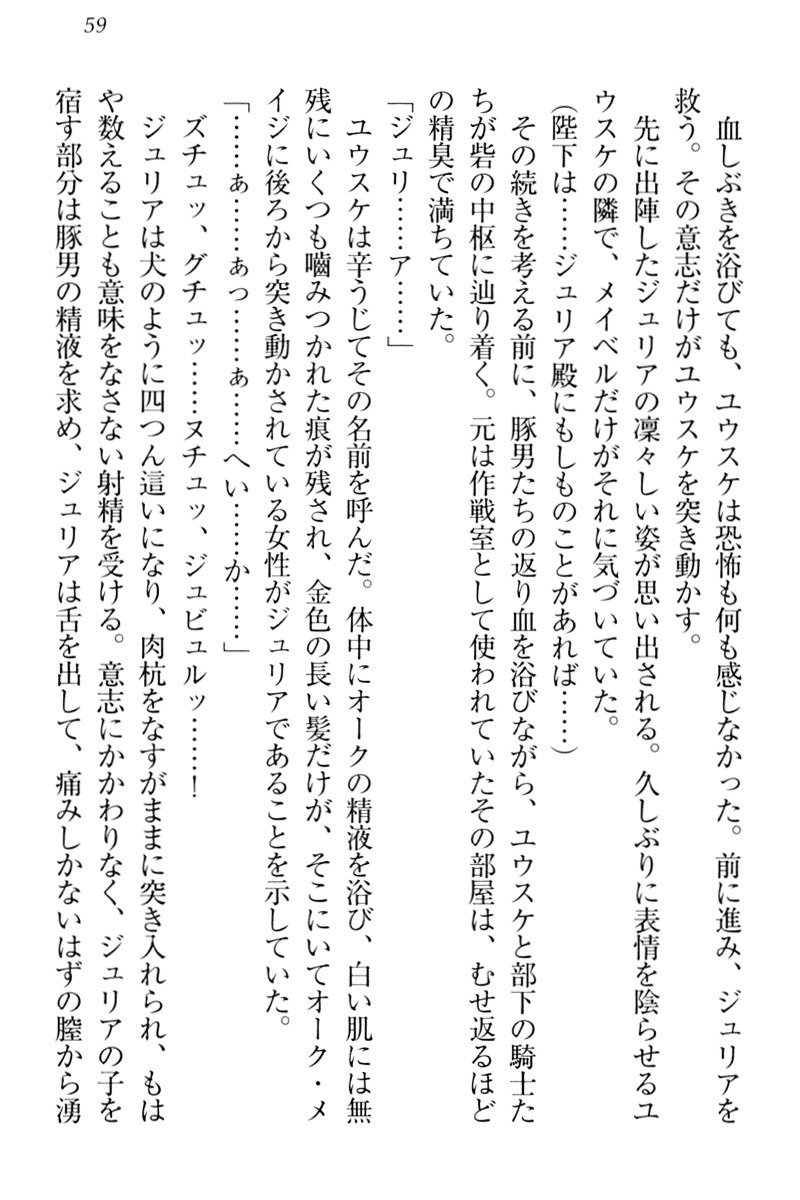 59
血しぶきを浴びても、ユウスケは恐怖も何も感じなかった。前に進み、ジュリアを
救う。その意志だけがユウスケを突き動かす。
先に出陣したジュリアの凜々しい姿が思い出される。久しぶりに表情を陰らせるユ
ウスケの隣で、メイベルだけがそれに気づいていた。
(陛下は……ジュリア殿にもしものことがあれば……)
その続きを考える前に、豚男たちの返り血を浴びながら、ユウスケと部下の騎士た
ちが砦の中枢に辿り着く。元は作戦室として使われていたその部屋は、むせ返るほど
の精臭で満ちていた。
「ジュリ……ア……」
ユウスケは辛うじてその名前を呼んだ。体中にオークの精液を浴び、白い肌には無
残にいくつも嚙みつかれた痕が残され、金色の長い髪だけが、そこにいてオーク・メ
イジに後ろから突き動かされている女性がジュリアであることを示していた。
「……ぁ……ぁっ……ぁ……へい……か……」
ズチュッ、グチュッ……ヌチュッ、ジュビュルッ……！
ジュリアは犬のように四つん這いになり、肉杭をなすがままに突き入れられ、もは
や数えることも意味をなさない射精を受ける。意志にかかわりなく、ジュリアの子を
宿す部分は豚男の精液を求め、ジュリアは舌を出して、痛みしかないはずの膣から湧